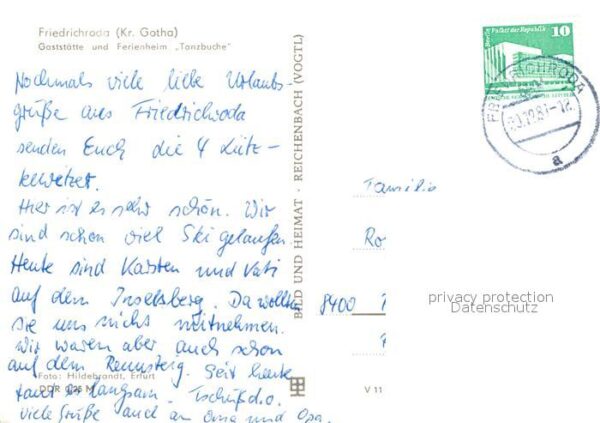 Friedrichroda (Kr. Gotha)
Gaststätte und Ferienheim „Tanzbuche"
Nochmals viele liebe Urlaubs-
grüße aus Friedrichroda
senden Euch die 4 Lütz-
kewitzer.
Hier ist es sehr schön. Wir
sind schon viel Ski gelaufen.
Heute sind Karsten und Vati
auf dem Inselsberg. Da wollten
sie uns nicht mitnehmen.
Wir waren aber auch schon
auf dem Rennsteig. Seit heute
taut es langsam. Tschüß d.o.
Viele Grüße auch an Oma und Opa.
Foto: Hildebrandt, Erfurt
DDR 0,25 M
BILD UND HEIMAT · REICHENBACH (VOGTL)
V 11
Berlin Palast der Republik
10
FRIEDRICHRODA
a
Familie
Ro
8400
privacy protection
Datenschutz